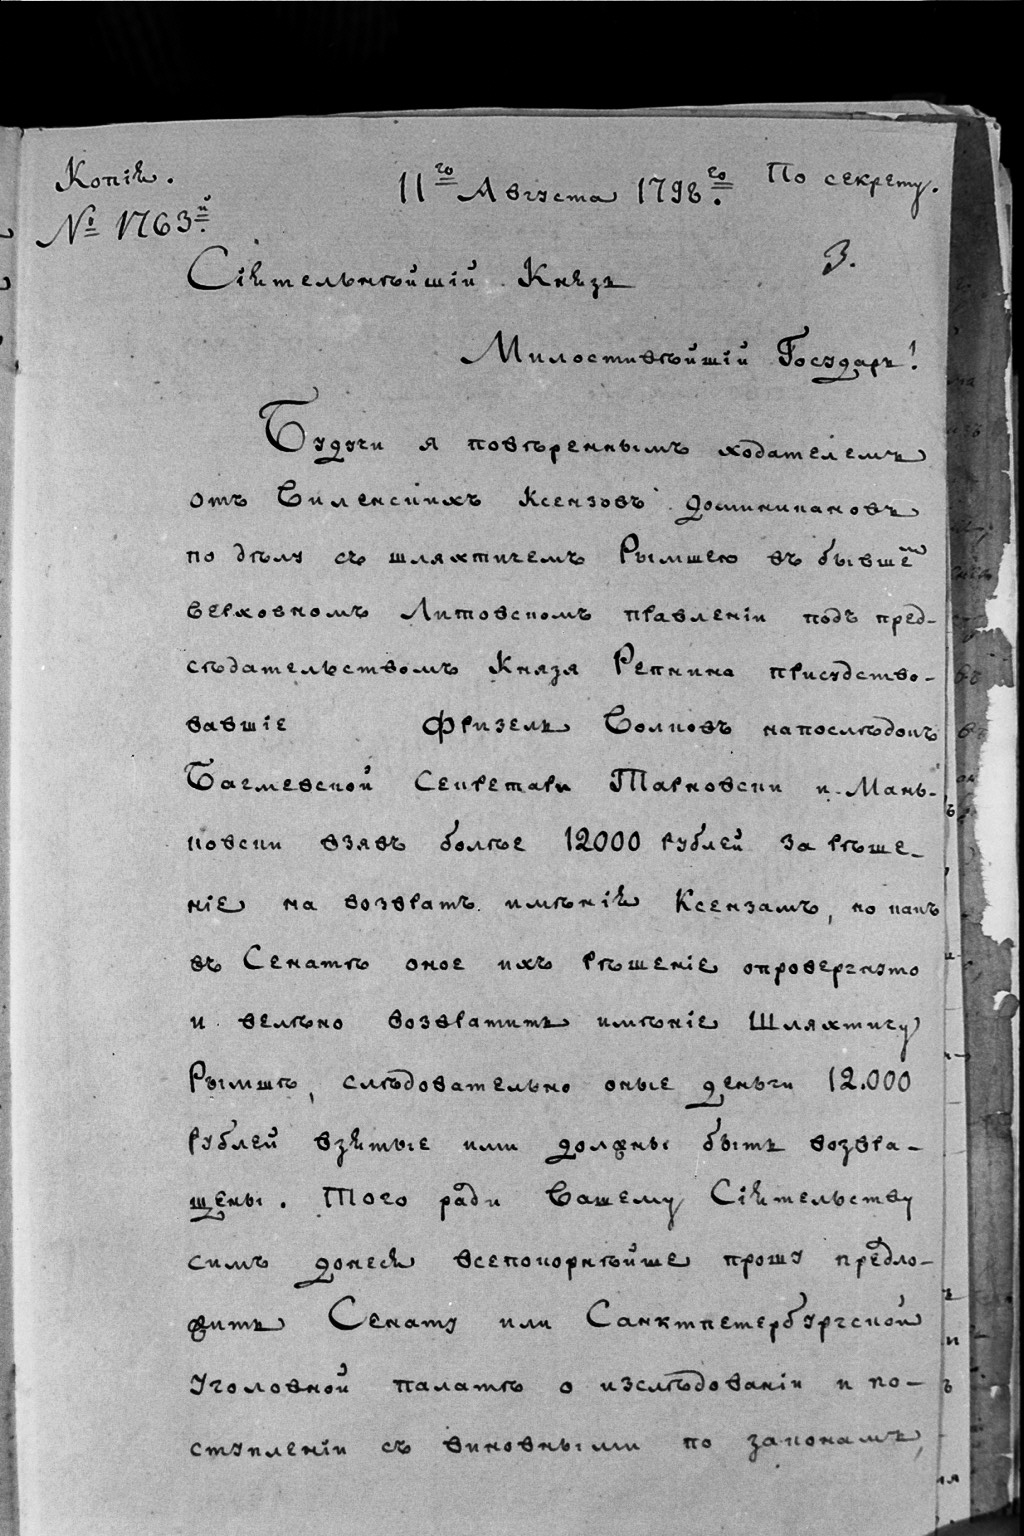 Копія.
11го Августа 1798го.
По секрету.
№ 1763й.
3.
Сіятельнѣйшій Князь
Милостивѣйшій Государь!
Будучи я повѣреннымъ ходателемъ
отъ Виленскихъ Ксензовъ Доминикановъ
по дѣлу съ шляхтичемъ Рымшею въ бывшем
верховномъ Литовскомъ правленіи подъ пред-
сѣдательствомъ Князя Репнина присудство-
вавшіе Фризель Волковъ напослѣдокъ
Багмевской Секретари Тарновски и Мань-
ковски взявъ болѣе 12000 рублей за рѣше-
ніе на возвратъ имѣнія Ксензамъ, но какъ
въ Сенатѣ оное ихъ рѣшеніе опровергнуто
и велѣно возвратить имѣніе Шляхтичу
Рымшѣ, слѣдовательно оные деньги 12.000
рублей взятые ими должны быть возвра-
щены. Того ради Вашему Сіятельству
симъ донеся всепокорнѣйше прошу предло-
жить Сенату или Санктпетербургской
Уголовной палатѣ о изслѣдованіи и по-
ступленіи съ виновными по законамъ,